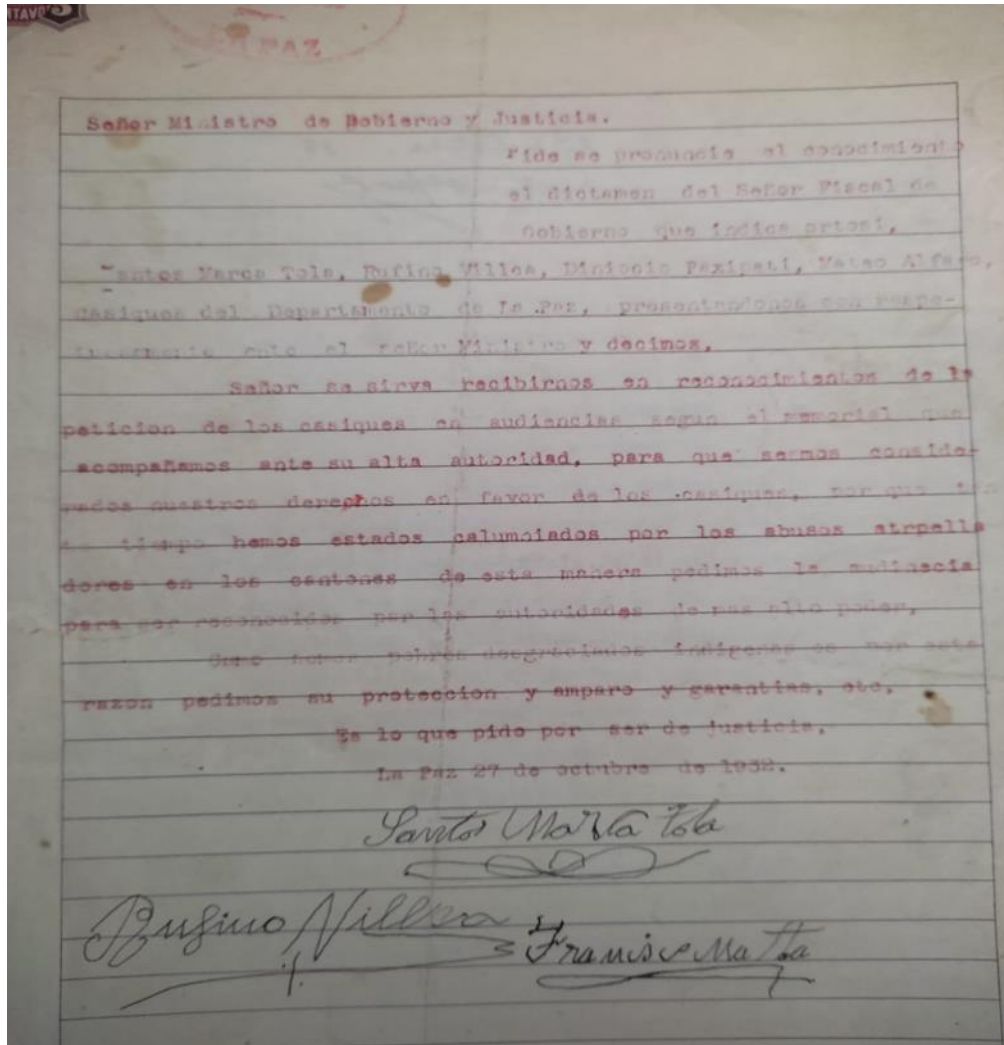 LA PAZ
Señor Ministro de Gobierno y Justicia.
Pide se pronuncie el conocimiento
el dictamen del Señor Fiscal de
Gobierno que indica
Santos Marca Tola, Rufino Villca, Mateo Alfaro,
casiques del Departamento de La Paz, presentandonos con respe-
ante el señor Ministro y decimos,
Señor se sirva recibirnos en reconocimientos de la
peticion de los casiques en audiencias segun el memorial que
acompañamos ante su alta autoridad, para que sermos conside-
rados nuestros derechos en favor de los casiques, por que
tiempo hemos estados calumniados por los abusos atrpella
dores en los cantones de esta manera pedimos la audinecia
para ser reconocidos por las autoridades de mas alto poder,
Como somos pobres desgraciados indigenas es por esta
razon pedimos su proteccion y amparo y garantias, etc,
Es lo que pido por ser de justicia,
La Paz 27 de octubre de 1932.
Santos Marca Tola
Rufino Villca